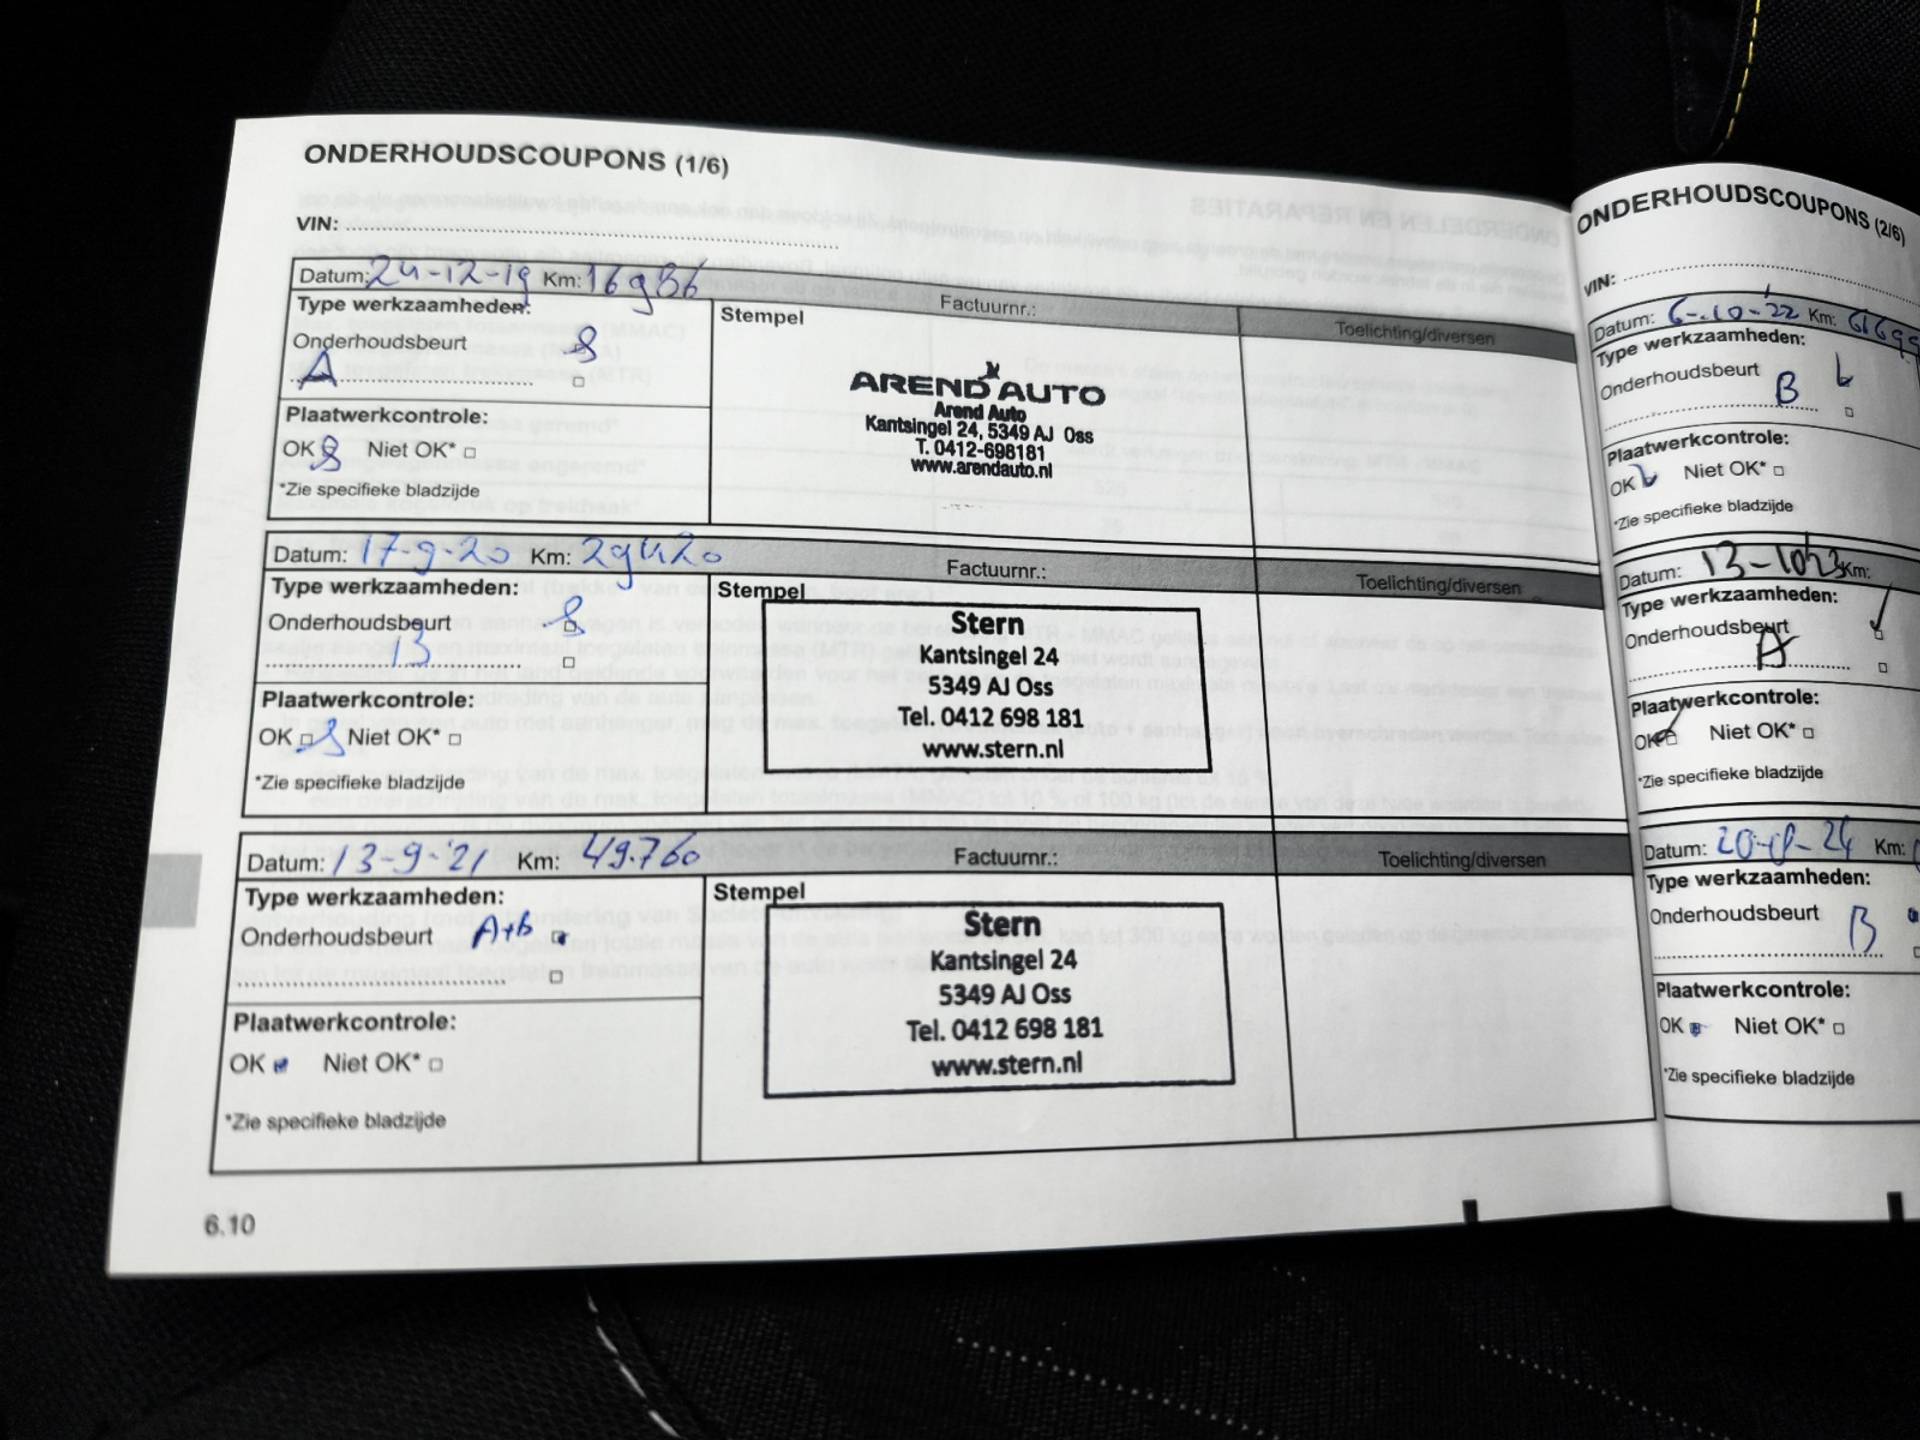 ONDERHOUDSCOUPONS (1/6)
VIN:
Datum: 24-12-19 Km: 16986
Factuurnr.:
Toelichting/diversen
Type werkzaamheden:
Onderhoudsbeurt
A
Plaatwerkcontrole:
OK Niet OK*
*Zie specifieke bladzijde
Stempel
AREND AUTO
Arend Auto
Kantsingel 24, 5349 AJ Oss
T. 0412-698181
www.arendauto.nl
Datum: 17-9-20 Km: 29420
Factuurnr.:
Toelichting/diversen
Type werkzaamheden:
Onderhoudsbeurt
B
Plaatwerkcontrole:
OK Niet OK*
*Zie specifieke bladzijde
Stempel
Stern
Kantsingel 24
5349 AJ Oss
Tel. 0412 698 181
www.stern.nl
Datum: 13-9-'21 Km: 49.760
Factuurnr.:
Toelichting/diversen
Type werkzaamheden:
Onderhoudsbeurt A+B
Plaatwerkcontrole:
OK Niet OK*
*Zie specifieke bladzijde
Stempel
Stern
Kantsingel 24
5349 AJ Oss
Tel. 0412 698 181
www.stern.nl
6.10
ONDERHOUDSCOUPONS (2/6)
VIN:
Datum: 6-10-'22 Km: 61699
Type werkzaamheden:
Onderhoudsbeurt
B
Plaatwerkcontrole:
OK Niet OK*
*Zie specifieke bladzijde
Datum: 13-10'23 Km:
Type werkzaamheden:
Onderhoudsbeurt
A
Plaatwerkcontrole:
OK Niet OK*
*Zie specifieke bladzijde
Datum: Km:
Type werkzaamheden:
Onderhoudsbeurt
B
Plaatwerkcontrole:
OK Niet OK*
*Zie specifieke bladzijde